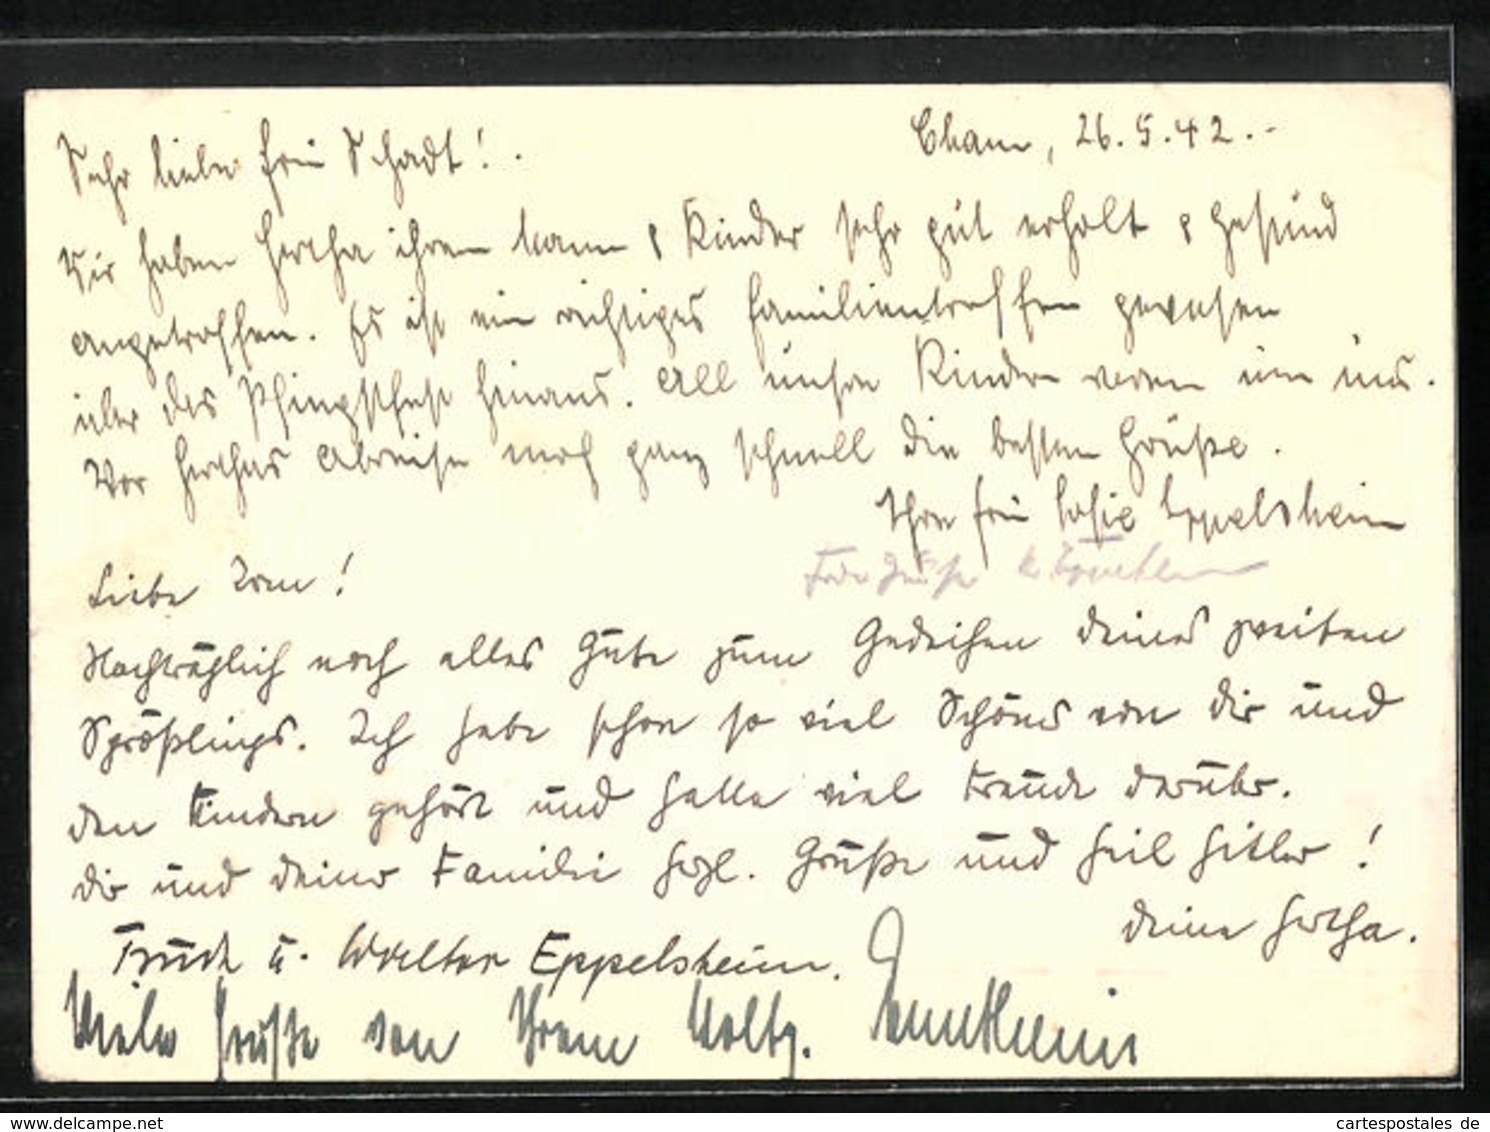 Cham, 26.5.42.-
Sehr liebe Frau Schadt!
Wir haben Hertha ihren Mann & Kinder sehr gut erholt & gesund
angetroffen. Es ist ein richtiges Familientreffen gewesen
über das Pfingstfest hinaus. All unsre Kinder waren um uns.
Vor Herthas Abreise noch ganz schnell die besten Grüße.
Ihre Frau Eppelsheim
Liebe !
Nachträglich noch alles Gute zum Gedeihen deines zweiten
Sprößlings. Ich habe schon so viel Schönes von dir und
den Kindern gehört und hatte viel Freude darüber.
dir und deiner Familie herzl. Grüße und Heil Hitler!
deine Hertha.
Trude u. Walter Eppelsheim.
Viele Grüße von Ihrem
www.delcampe.net
cartespostales de